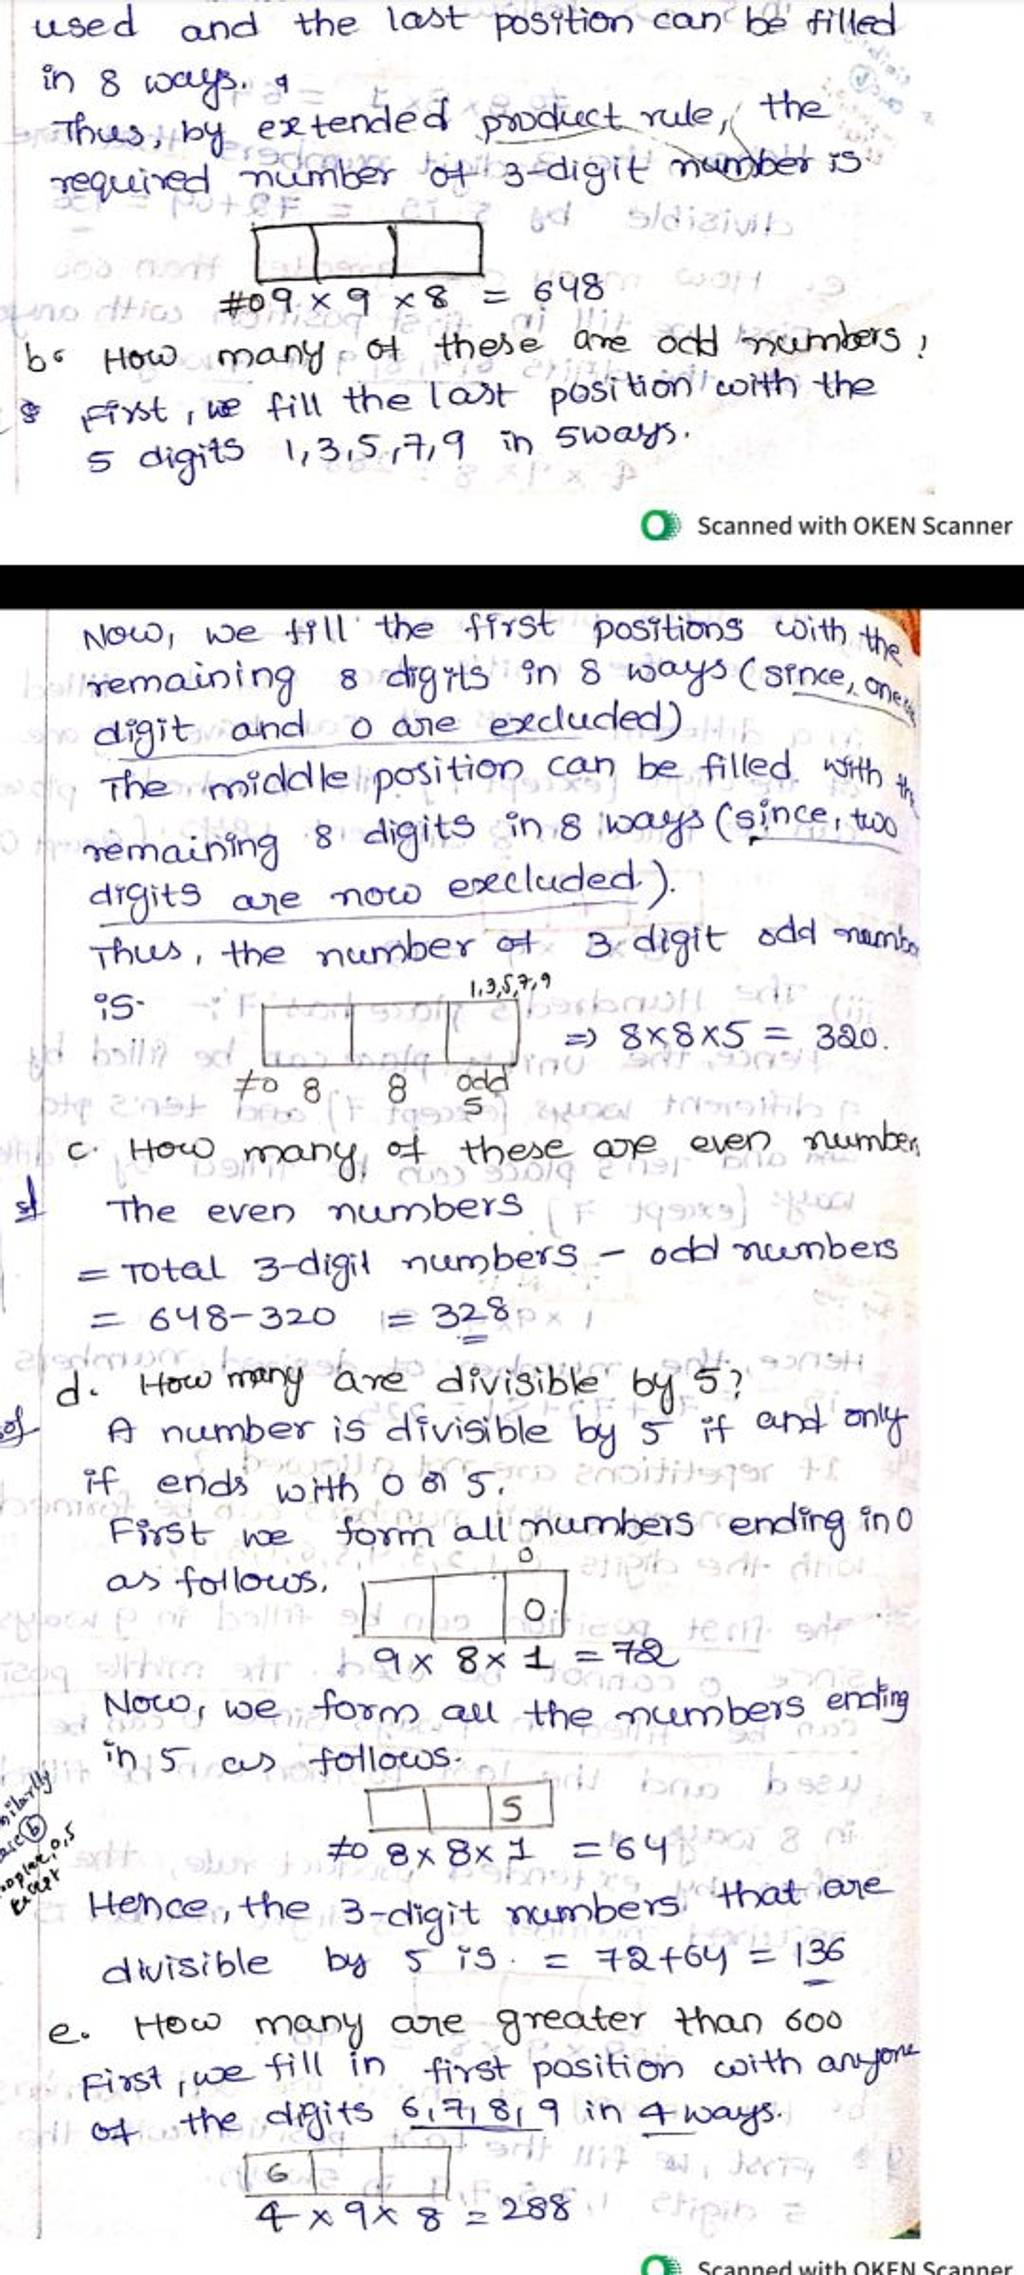 used and the last position can be filled
in 8 ways.
Thus, by extended product rule, the
required number of 3-digit number is
≠0 9 × 9 × 8 = 648
b. How many of these are odd numbers?
First, we fill the last position with the
5 digits 1,3,5,7,9 in 5ways.
Scanned with OKEN Scanner
Now, we fill the first positions with the
remaining 8 digits in 8 ways (since, one
digit and 0 are excluded)
The middle position can be filled with the
remaining 8 digits in 8 ways (since, two
digits are now excluded.).
Thus, the number of 3 digit odd numbe
is.
1,3,5,7,9
⇒ 8×8×5 = 320.
≠0 8 8 odd
5
c. How many of these are even number
The even numbers
= Total 3-digit numbers - odd numbers
= 648-320 = 328
d. How many are divisible by 5?
A number is divisible by 5 if and only
if ends with 0 or 5.
First we form all numbers ending in 0
as follows.
0
0
9 × 8 × 1 = 72
Now, we form all the numbers ending
in 5 as follows.
5
≠0 8 × 8 × 1 = 64
Hence, the 3-digit numbers that are
divisible by 5 is. = 72+64 = 136
e. How many are greater than 600
First, we fill in first position with anyone
of the digits 6,7,8,9 in 4 ways.
6
4 × 9 × 8 = 288
Scanned with OKEN Scanner